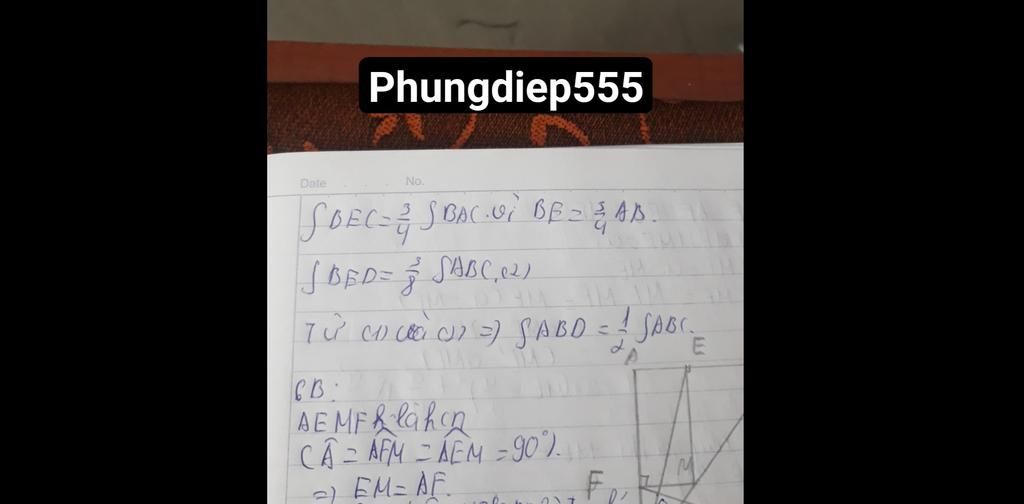 Phungdiep555
Date No.
SBEC = 3/4 SBAC. vì BE = 3/4 AB.
SBED = 3/8 SABC (2)
Từ (1) và (2) => SABD = 1/2 SABC.
A E
6B:
AEMF là hcn
( Â = AFM = AEM = 90°).
=> EM = AF.
M
F